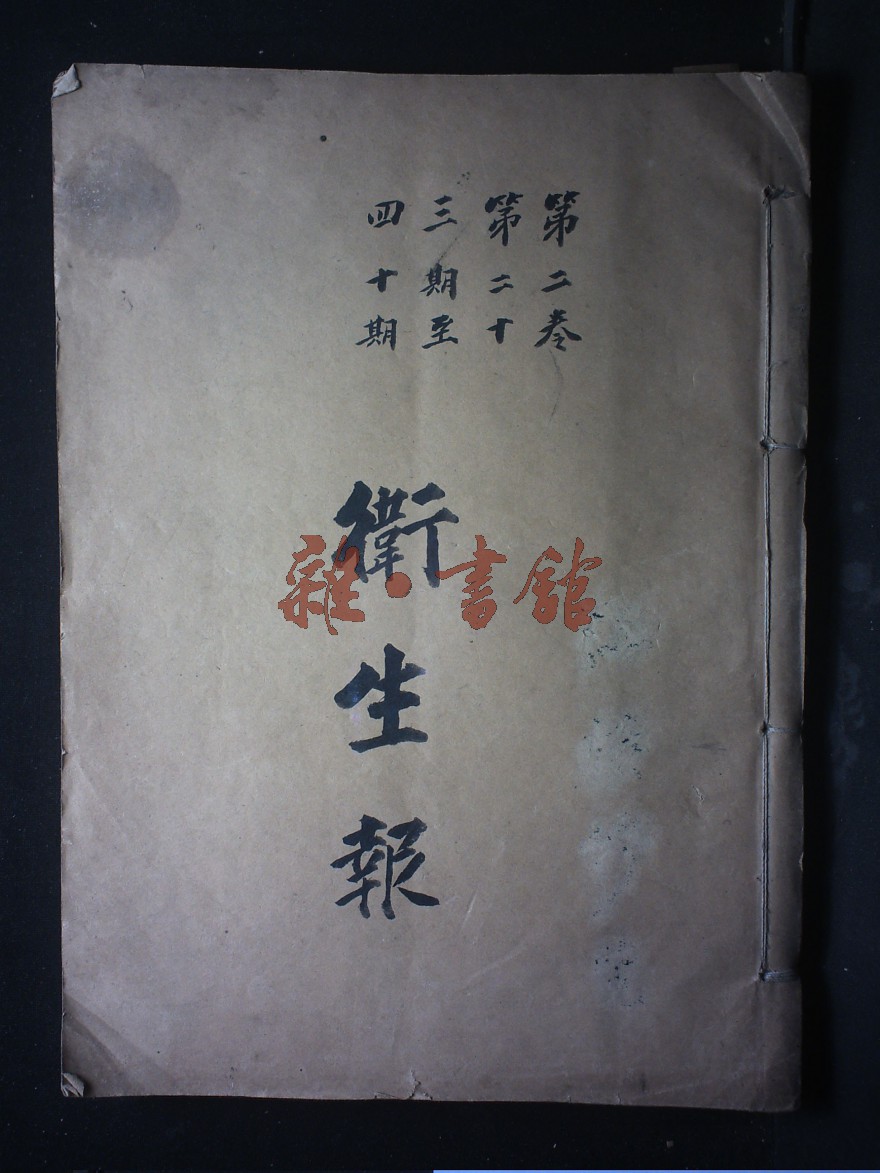 第二卷
第二十
三期至
四十期
衛生報
雜·書館